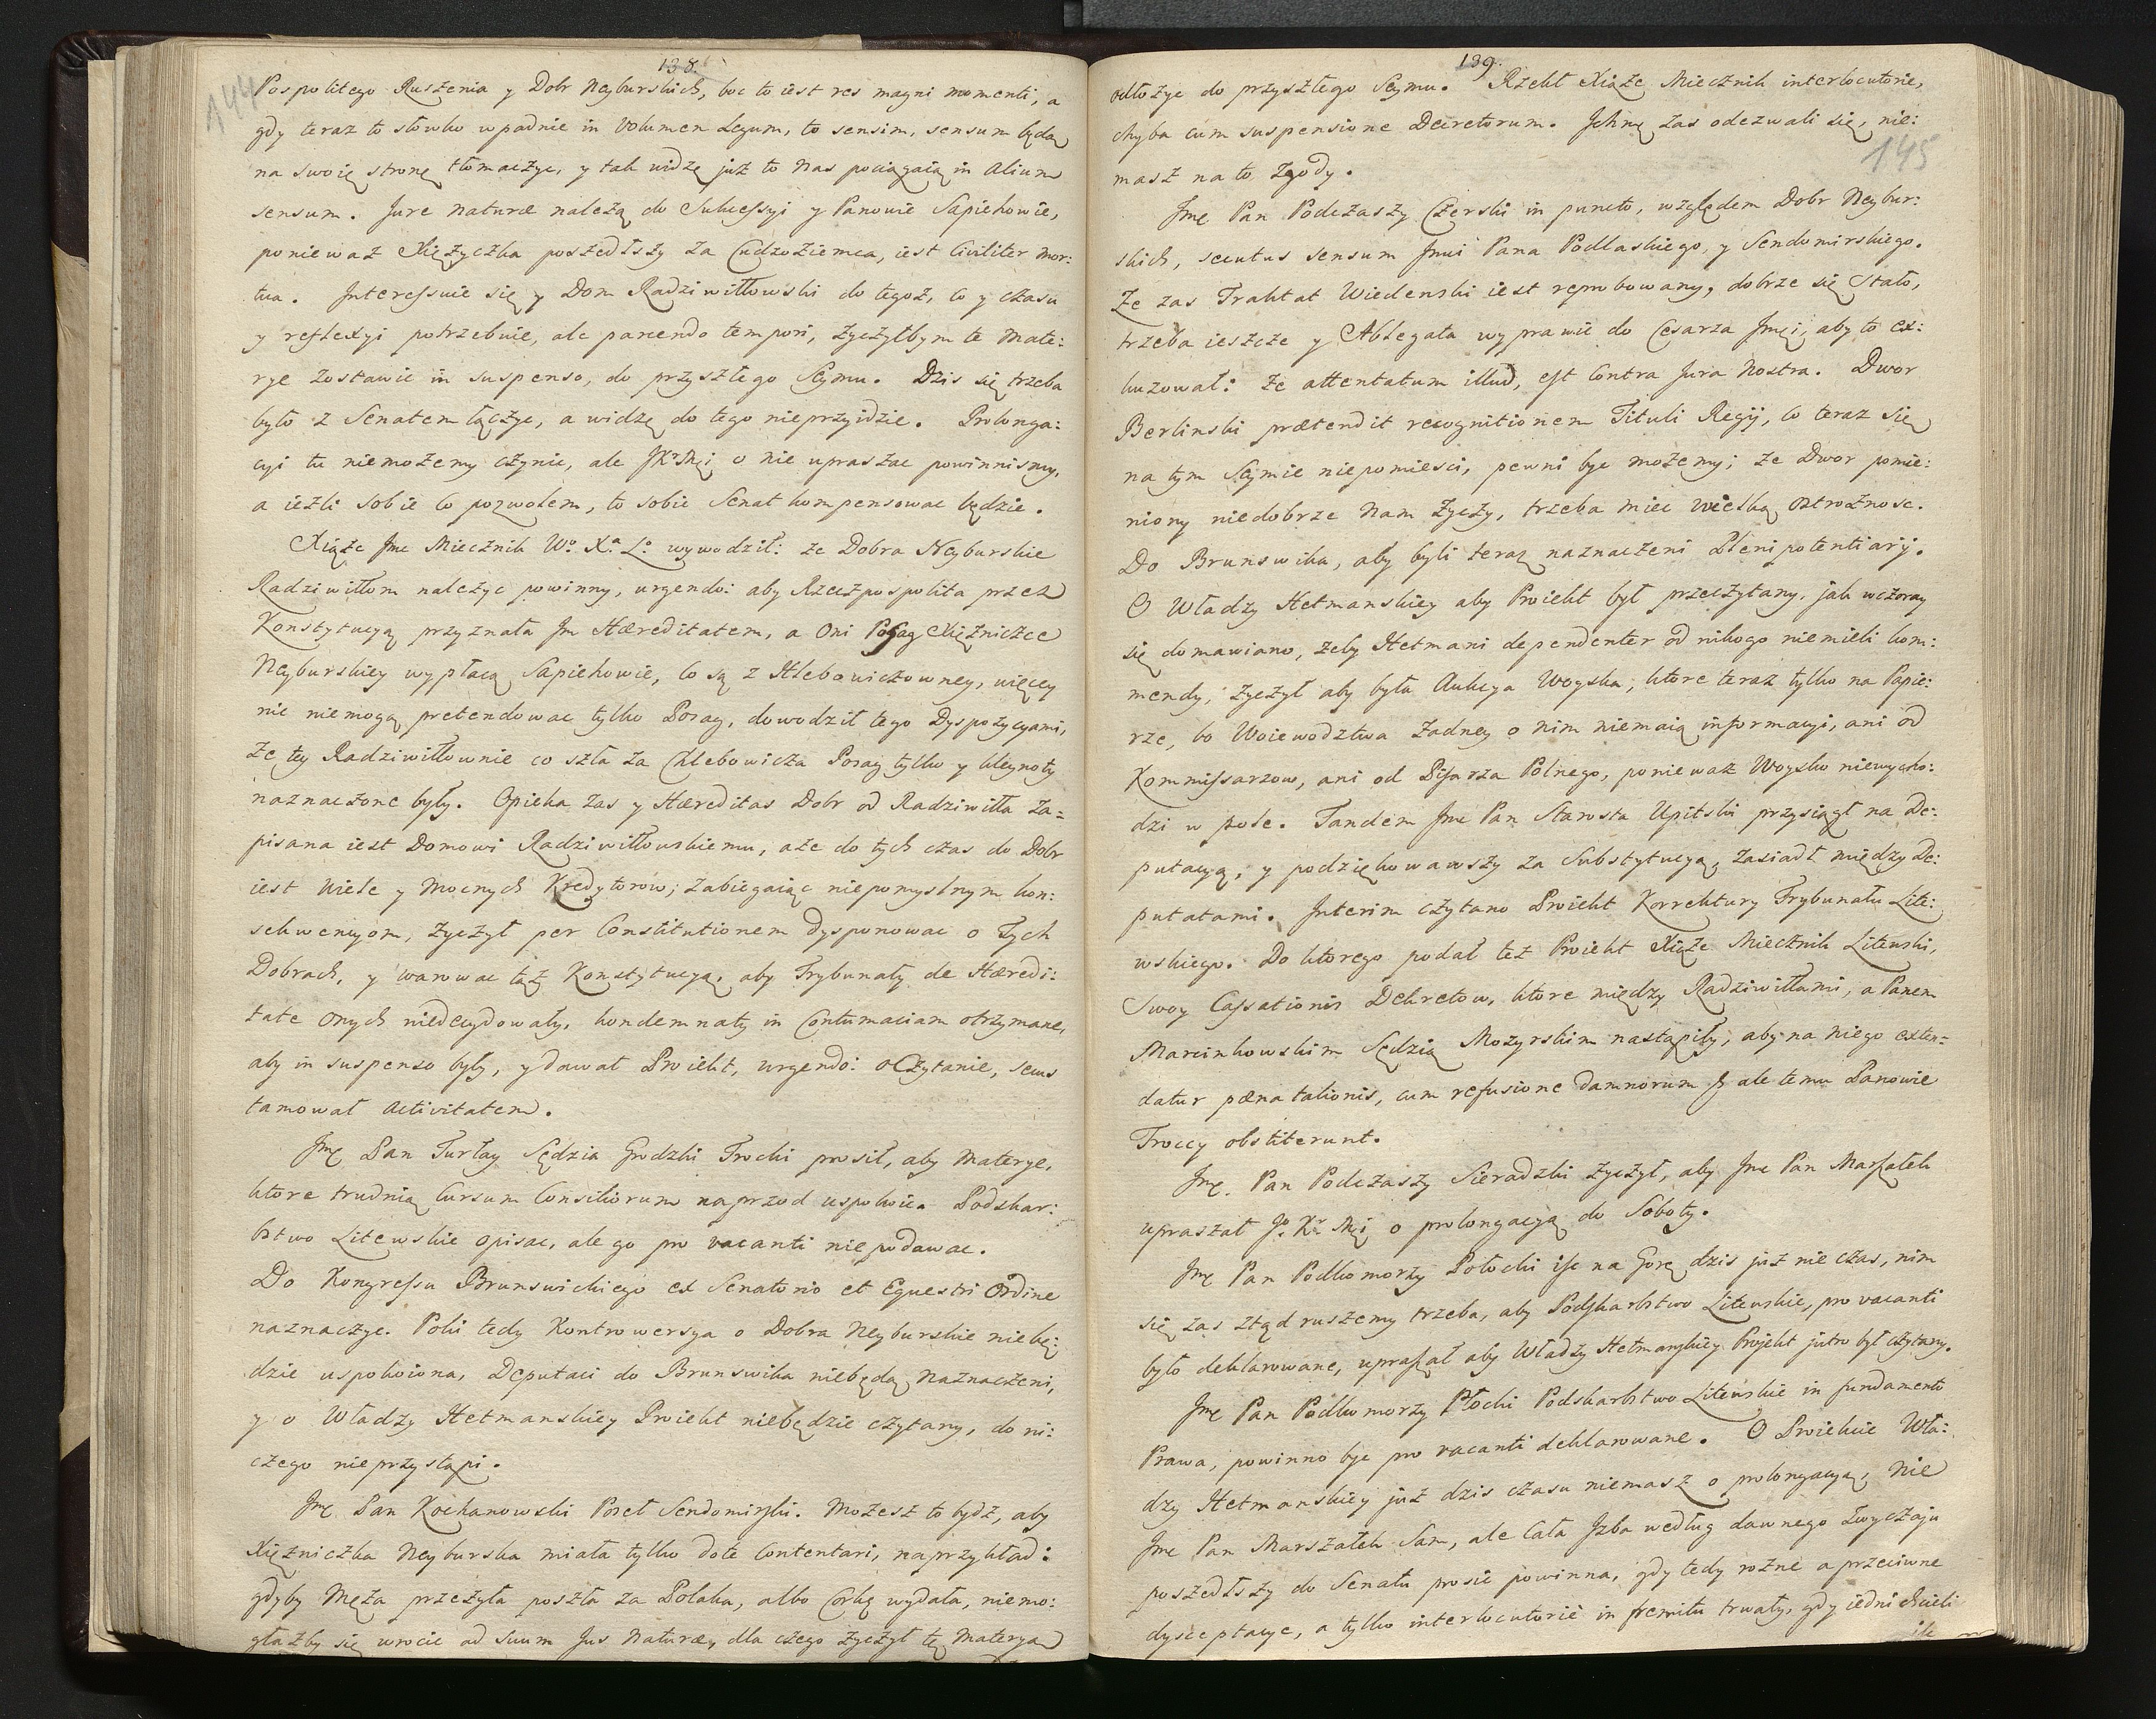 138.
144
Pospolitego Ruszenia y Dobr Neyburskich, boc to iest res magni momenti, a
gdy teraz to słowko wpadnie in Volumen Legum, to sensim, sensum będą
na swoię stronę tłomaczyc, y tak widzę już to Nas pociągaią in Alium
sensum. Jure Naturæ należą do Sukcessyi y Panowie Sapiehowie,
ponieważ Xiężyczka poszedłszy za Cudzoziemca, iest Civiliter mor:
tua. Interessuie się y Dom Radziwiłłowski do tegoż, co y czasu
y reflexyi potrzebuie, ale parcendo tempori, życzyłbym te Mate:
rye zostawic in suspenso, do przyszłego Seymu. Dzis się trzeba
było z Senatem łączyc, a widzę do tego nieprzyidzie. Prolonga:
cyi tu niemożemy czynic, ale JKrMci o nie upraszac powinnismy,
a iezli sobie co pozwolem, to sobie Senat kompensowac będzie.
Xiąże Jmc Miecznik Wo. Xa. Lo. wywodził: że Dobra Neyburskie
Radziwiłłom należyc powinny, urgendo: aby Rzeczpospolita przez
Konstytucyą przyznała Jm Hæreditatem, a Oni Posag Xiężniczce
Neyburskiey wypłacą Sapiehowie, co są z Hlebowiczowney, więcey
nic niemogą pretendowac tylko Posag, dowodził tego Dyspozycyami,
że tey Radziwiłłownie co szła za Chlebowicza Posag tylko y kleynoty
naznaczone były. Opieka zas y Hæreditas Dobr od Radziwiłła za=
pisana iest Domowi Radziwiłłowskiemu, aże do tych czas do Dobr
iest wiele y mocnych Kredytorow; zabiegaiąc niepomyslnym kon:
sekwencyom, życzył per Constitutionem dysponowac o Tych
Dobrach, y warowac tąż Konstytucyą, aby Trybunały de Hæredi:
tate onych niedecydowały, kondemnaty in Contumaciam otrzymane,
aby in suspenso były, y dawał Proiekt, urgendo: o Czytanie, secus
tamował Activitatem.
Jmc Pan Turłay Sędzia Grodzki Trocki prosił, aby Materye,
ktore trudnią Cursum Consiliorum naprzod uspokoic. Podskar:
bstwo Litewskie opisac, ale go pro vacanti niepodawac.
Do Kongressu Brunswickiego ex Senatorio et Equestri Ordine
naznaczyc. Poki tedy Kontrowersya o Dobra Neyburskie niebę:
dzie uspokoiona, Deputaci do Brunswika niebędą Naznaczeni,
y o Władzy Hetmanskiey Proiekt niebędzie czytany, do ni:
czego nieprzystąpi.
Jmc Pan Kochanowski Poseł Sendomirski. Możesz to bydz, aby
Xiężniczka Neyburska miała tylko dote Contentari, naprzykład:
gdyby Męża przeżyła poszła za Polaka, albo Corkę wydała, niemo:
głażby się wrocic ad suum Jus Naturæ, dla czego życzył tę Materyą
139.
145
odłożyc do przyszłego Seymu. Rzekł Xiąże Miecznik interlocutorie,
chyba cum suspensione Decretorum. Ichmę zas odezwali się, nie:
masz na to Zgody.
Jmc Pan Podczaszy Czerski in puncto, względem Dobr Neybur:
skich, secutus sensum Jmci Pana Podlaskiego, y Sendomirskiego.
Że zas Traktat Wiedenski iest reprobowany, dobrze się Stało,
trzeba ieszcze y Ablegata wyprawic do Cesarza Jmci, aby to ex:
kuzował: że attentatum illud, est Contra Jura Nostra. Dwor
Berlinski prætendit recognitionem Tituli Regij, co teraz się
na tym Seymie niepomiesci, pewni byc możemy; że Dwor pomie:
niony niedobrze Nam życzy, trzeba miec wielką ostrożnosc.
Do Brunswika, aby byli teraz naznaczeni Plenipotentiarij.
O Władzy Hetmanskiey aby Proiekt był przeczytany, jak wczoray
się domawiano, żeby Hetmani dependenter od nikogo niemieli kom:
mendy, życzył aby była Aukcya Woyska, ktore teraz tylko na Papie:
rze, bo Woiewodztwa żadney o nim niemaią informacyi, ani od
Kommissarzow, ani od Pisarza Polnego, ponieważ Woysko niewycho:
dzi w pole. Tandem Jmc Pan Starosta Upitski przysiągł na De:
putacyą, y podziękowawszy za Substytucyą, zasiadł między De:
putatami. Interim czytano Proiekt Korrektury Trybunału Lite:
wskiego. Do ktorego podał też Proiekt Xiąże Miecznik Litewski,
Swoy Cassationis Dekretow, ktore między Radziwiłłami, a Panem
Marcinkowskim Sędzią Mozyrskim nastąpiły, aby na niego exten=
datur pæna talionis, cum refusione damnorum & ale temu Panowie
Troccy obstiterunt.
Jmc. Pan Podczaszy Sieradzki życzył, aby Jmc Pan Marszałek
upraszał Jo. Kr. Mci o prolongacyą do Soboty.
Jmc Pan Podkomorzy Połocki isc na Gorę dzis już nie czas, nim
się zas ztąd ruszemy trzeba, aby Podskarbstwo Litewskie, pro vacanti
było deklarowane, upraszał aby Władzy Hetmanskiey Projekt jutro był czytany.
Jmc Pan Podkomorzy Płocki Podskarbstwo Litewskie in fundamento
Prawa, powinno byc pro vacanti deklarowane. O Proiekcie Wła:
dzy Hetmanskiey już dzis czasu niemasz o prolongacyą, nie
Jmc Pan Marszałek Sam, ale cała Izba według dawnego zwyczaju
poszedłszy do Senatu prosic powinna, gdy tedy rożne a przeciwne
dysceptacye, a tylko interlocutorie in fremitu trwały, gdy iedni chcieli
isc